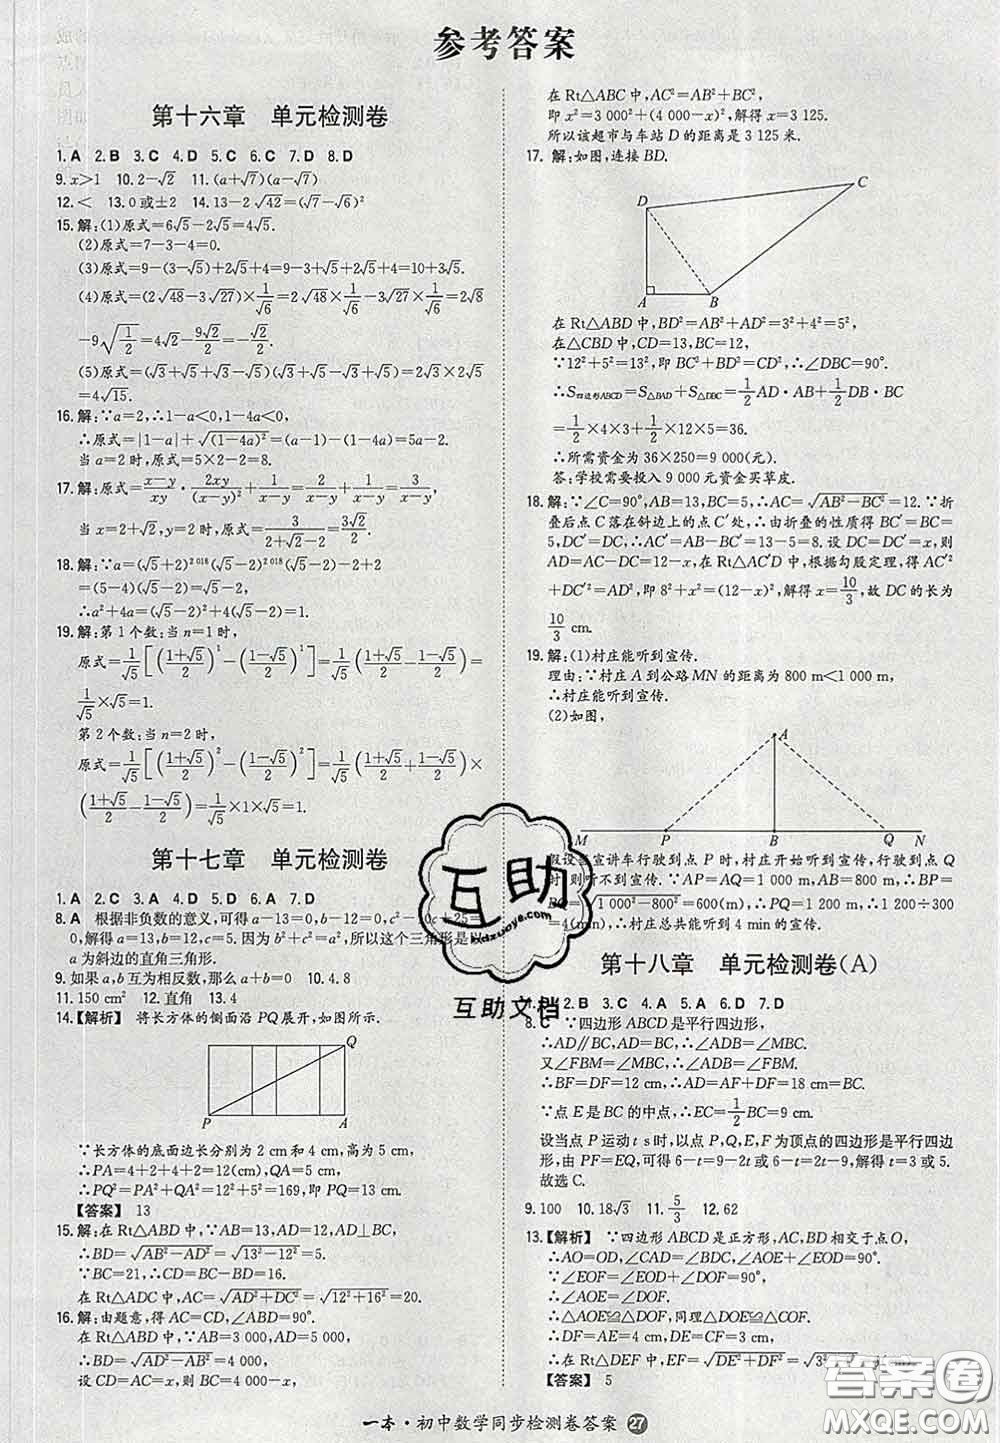 参考答案
第十六章 单元检测卷
1. A 2. B 3. C 4. D 5. C 6. C 7. D 8. D
9. x>1 10. 2-√2 11. (a+√7)(a-√7)
12. < 13. 0或±2 14. 13-2√42=(√7-√6)²
15. 解:(1)原式=6√5-2√5=4√5.
(2)原式=7-3-4=0.
(3)原式=9-(3-√5)+2√5+4=9-3+√5+2√5+4=10+3√5.
(4)原式=(2√48-3√27)×1/√6=2√48×1/√6-3√27×1/√6=2√8
-9√(1/2)=4√2-9√2/2=-√2/2.
(5)原式=(√3+√5+√3-√5)(√3+√5-√3+√5)=2√3×2√5
=4√15.
16. 解:∵a=2,∴1-a<0,1-4a<0,
∴原式=|1-a|+√(1-4a)²=(a-1)-(1-4a)=5a-2.
当a=2时,原式=5×2-2=8.
17. 解:原式=(x-y)/xy·2xy/(x-y)²+1/(x-y)=2/(x-y)+1/(x-y)=3/(x-y),
当x=2+√2,y=2时,原式=3/(2+√2-2)=3√2/2.
18. 解:∵a=(√5+2)²⁰¹⁸(√5-2)²⁰¹⁸(√5-2)-2+2
=(5-4)(√5-2)=√5-2,
∴a²+4a=(√5-2)²+4(√5-2)=1.
19. 解:第1个数:当n=1时,
原式=1/√5[((1+√5)/2)¹-((1-√5)/2)¹]=1/√5((1+√5)/2-(1-√5)/2)=
1/√5×√5=1.
第2个数:当n=2时,
原式=1/√5[((1+√5)/2)²-((1-√5)/2)²]=1/√5((1+√5)/2+(1-√5)/2)×
((1+√5)/2-(1-√5)/2)=1/√5×1×√5=1.
第十七章 单元检测卷
1. A 2. C 3. A 4. D 5. D 6. A 7. D
8. A 根据非负数的意义,可得a-13=0,b-12=0,c²-10c+25=
0,解得a=13,b=12,c=5.因为b²+c²=a²,所以这个三角形是以
a为斜边的直角三角形.
9. 如果a,b互为相反数,那么a+b=0 10. 4.8
11. 150 cm² 12. 直角 13. 4
14. 【解析】 将长方体的侧面沿PQ展开,如图所示.
Q
P A
∵长方体的底面边长分别为2 cm和4 cm,高为5 cm,
∴PA=4+2+4+2=12(cm),QA=5 cm,
∴PQ²=PA²+QA²=12²+5²=169,即PQ=13 cm.
【答案】 13
15. 解:在Rt△ABD中,∵AB=13,AD=12,AD⊥BC,
∴BD=√(AB²-AD²)=√(13²-12²)=5.
∵BC=21,∴CD=BC-BD=16.
在Rt△ADC中,AC=√(AD²+DC²)=√(12²+16²)=20.
16. 解:由题意,得AC=CD,∠ABD=90°.
在Rt△ABD中,∵AB=3 000,AD=5 000,
∴BD=√(AD²-AB²)=4 000,
设CD=AC=x,则BC=4 000-x,
在Rt△ABC中,AC²=AB²+BC²,
即x²=3 000²+(4 000-x)²,解得x=3 125.
所以该超市与车站D的距离是3 125米.
17. 解:如图,连接BD.
C
D
A B
在Rt△ABD中,BD²=AB²+AD²=3²+4²=5²,
在△CBD中,CD=13,BC=12,
∵12²+5²=13²,即BC²+BD²=CD²,∴∠DBC=90°.
∴S四边形ABCD=S△BAD+S△DBC=1/2AD·AB+1/2DB·BC
=1/2×4×3+1/2×12×5=36.
∴所需资金为36×250=9 000(元).
答:学校需要投入9 000元资金买草皮.
18. 解:∵∠C=90°,AB=13,BC=5,∴AC=√(AB²-BC²)=12.∵折
叠后点C落在斜边上的点C′处,∴由折叠的性质得BC′=BC=
5,DC′=DC,∴AC′=AB-BC′=13-5=8.设DC=DC′=x,则
AD=AC-DC=12-x,在Rt△AC′D中,根据勾股定理,得AC′²
+DC′²=AD²,即8²+x²=(12-x)²,解得x=10/3,故DC的长为
10/3 cm.
19. 解:(1)村庄能听到宣传.
理由:∵村庄A到公路MN的距离为800 m<1 000 m,
∴村庄能听到宣传.
(2)如图,
A
M P B Q N
假设当宣讲车行驶到点P时,村庄开始听到宣传,行驶到点Q
时,则听不到宣传.∵AP=AQ=1 000 m,AB=800 m,∴BP=
BQ=√(1 000²-800²)=600(m),∴PQ=1 200 m,∵1 200÷300
=4(min),∴村庄总共能听到4 min的宣传.
第十八章 单元检测卷(A)
1. A 2. B 3. C 4. A 5. A 6. D 7. D
8. C ∵四边形ABCD是平行四边形,
∴AD∥BC,AD=BC,∴∠ADB=∠MBC.
又∠FBM=∠MBC,∴∠ADB=∠FBM.
∴BF=DF=12 cm,∴AD=AF+DF=18 cm=BC.
∵点E是BC的中点,∴EC=1/2BC=9 cm.
设当点P运动t s时,以点P,Q,E,F为顶点的四边形是平行四边
形,由PF=EQ,可得6-t=9-2t或6-t=2t-9,解得t=3或5.
故选C.
9. 100 10. 18√3 11. 5/3 12. 62
13. 【解析】 ∵四边形ABCD是正方形,AC,BD相交于点O,
∴AO=OD,∠CAD=∠BDC,∠AOE+∠EOD=90°.
∵∠EOF=∠EOD+∠DOF=90°,
∴∠AOE=∠DOF.
∴△AOE≌△DOF,同理△DOE≌△COF.
∴DF=AE=4 cm,DE=CF=3 cm.
∴在Rt△DEF中,EF=√(DE²+DF²)=
【答案】 5
一本·初中数学同步检测卷答案 27
互助
hdzuoye.com
互助文档
答案圈
MXQE.COM